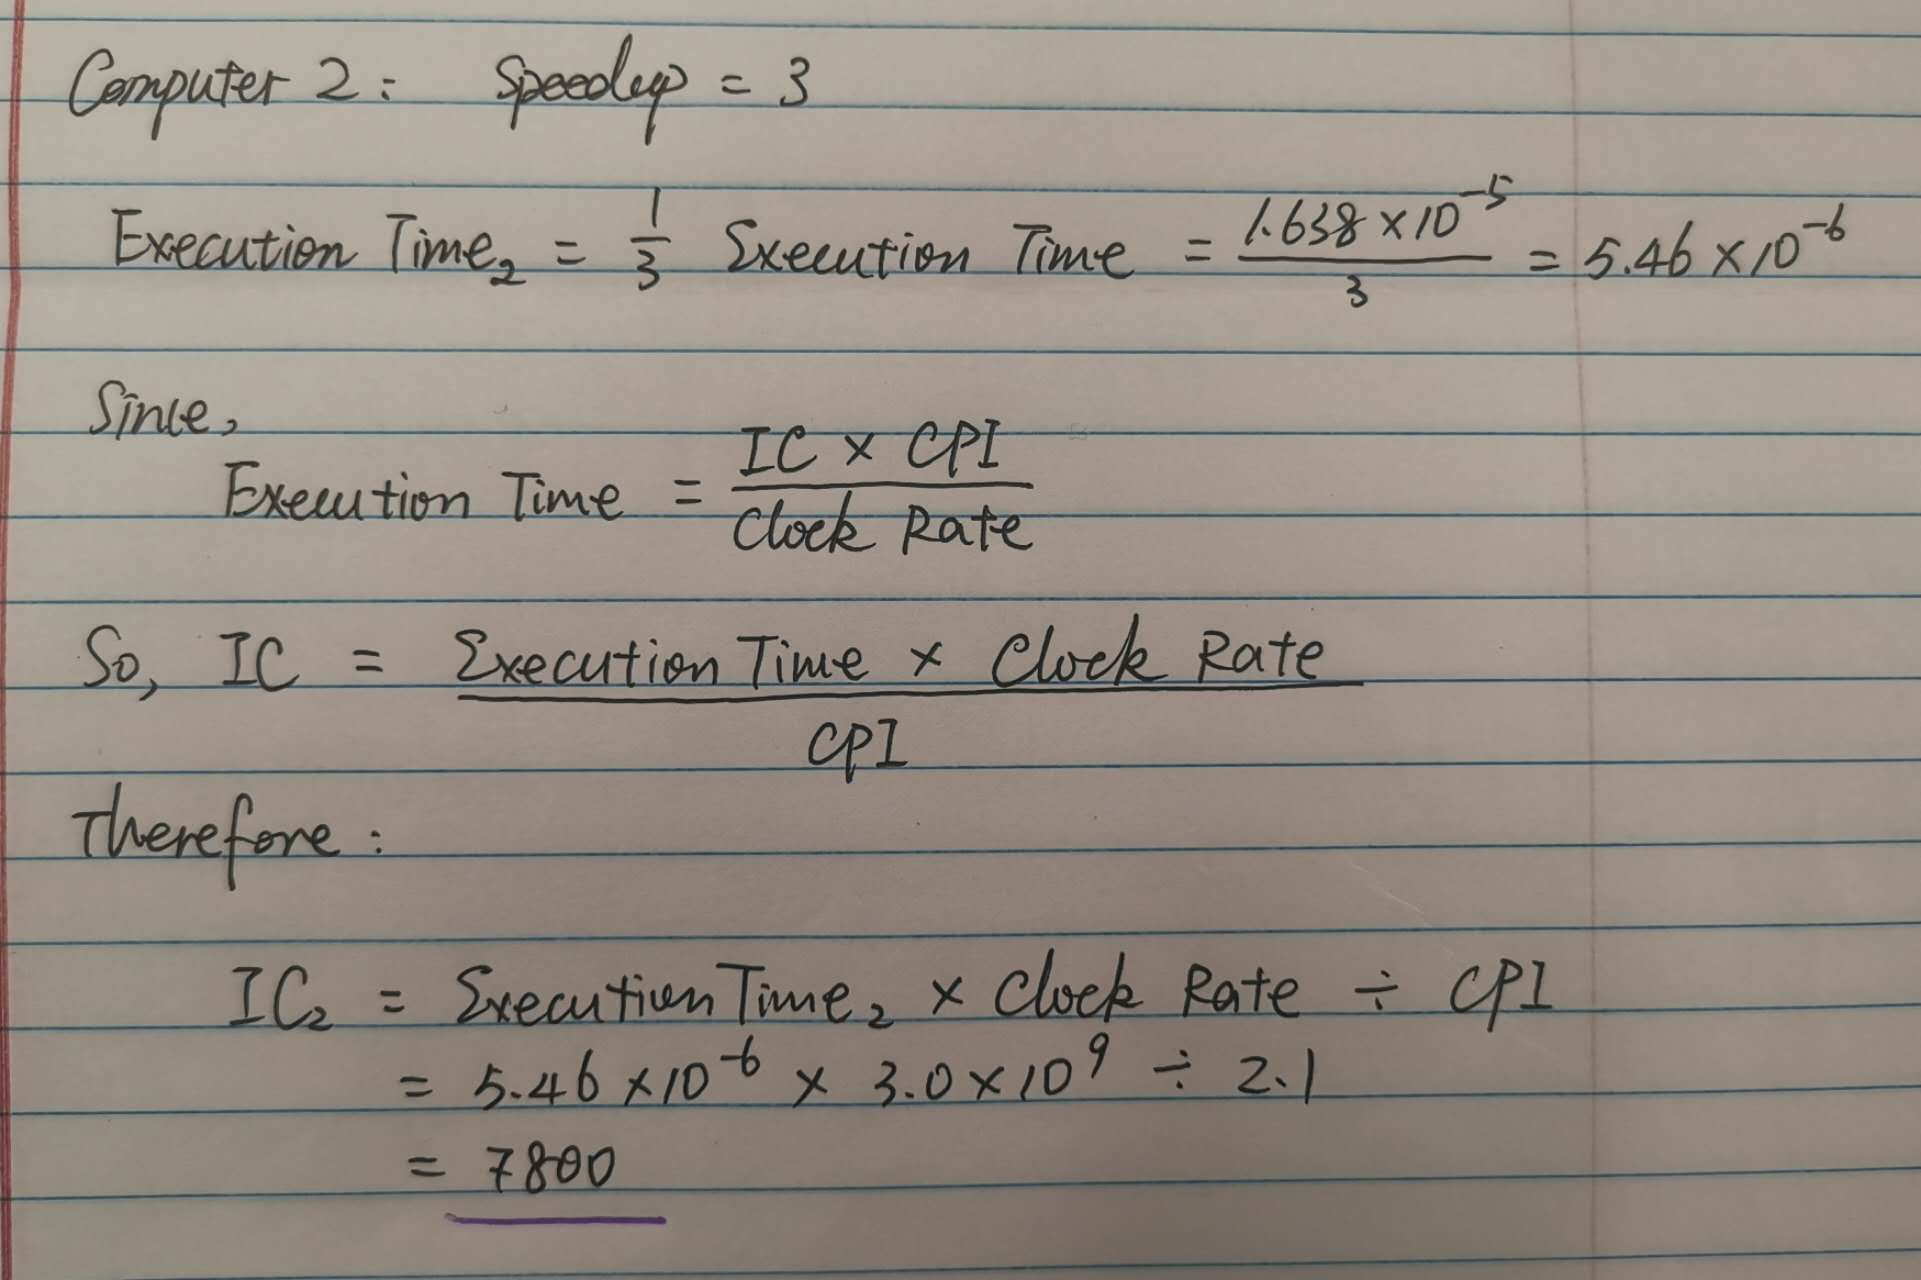 Computer 2: Speedup = 3
Execution Time₂ = 1/3 Execution Time = 1.638 × 10⁻⁵ / 3 = 5.46 × 10⁻⁶
Since,
Execution Time = IC × CPI / Clock Rate
So, IC = Execution Time × Clock Rate / CPI
Therefore:
IC₂ = Execution Time₂ × Clock Rate ÷ CPI
= 5.46 × 10⁻⁶ × 3.0 × 10⁹ ÷ 2.1
= 7800